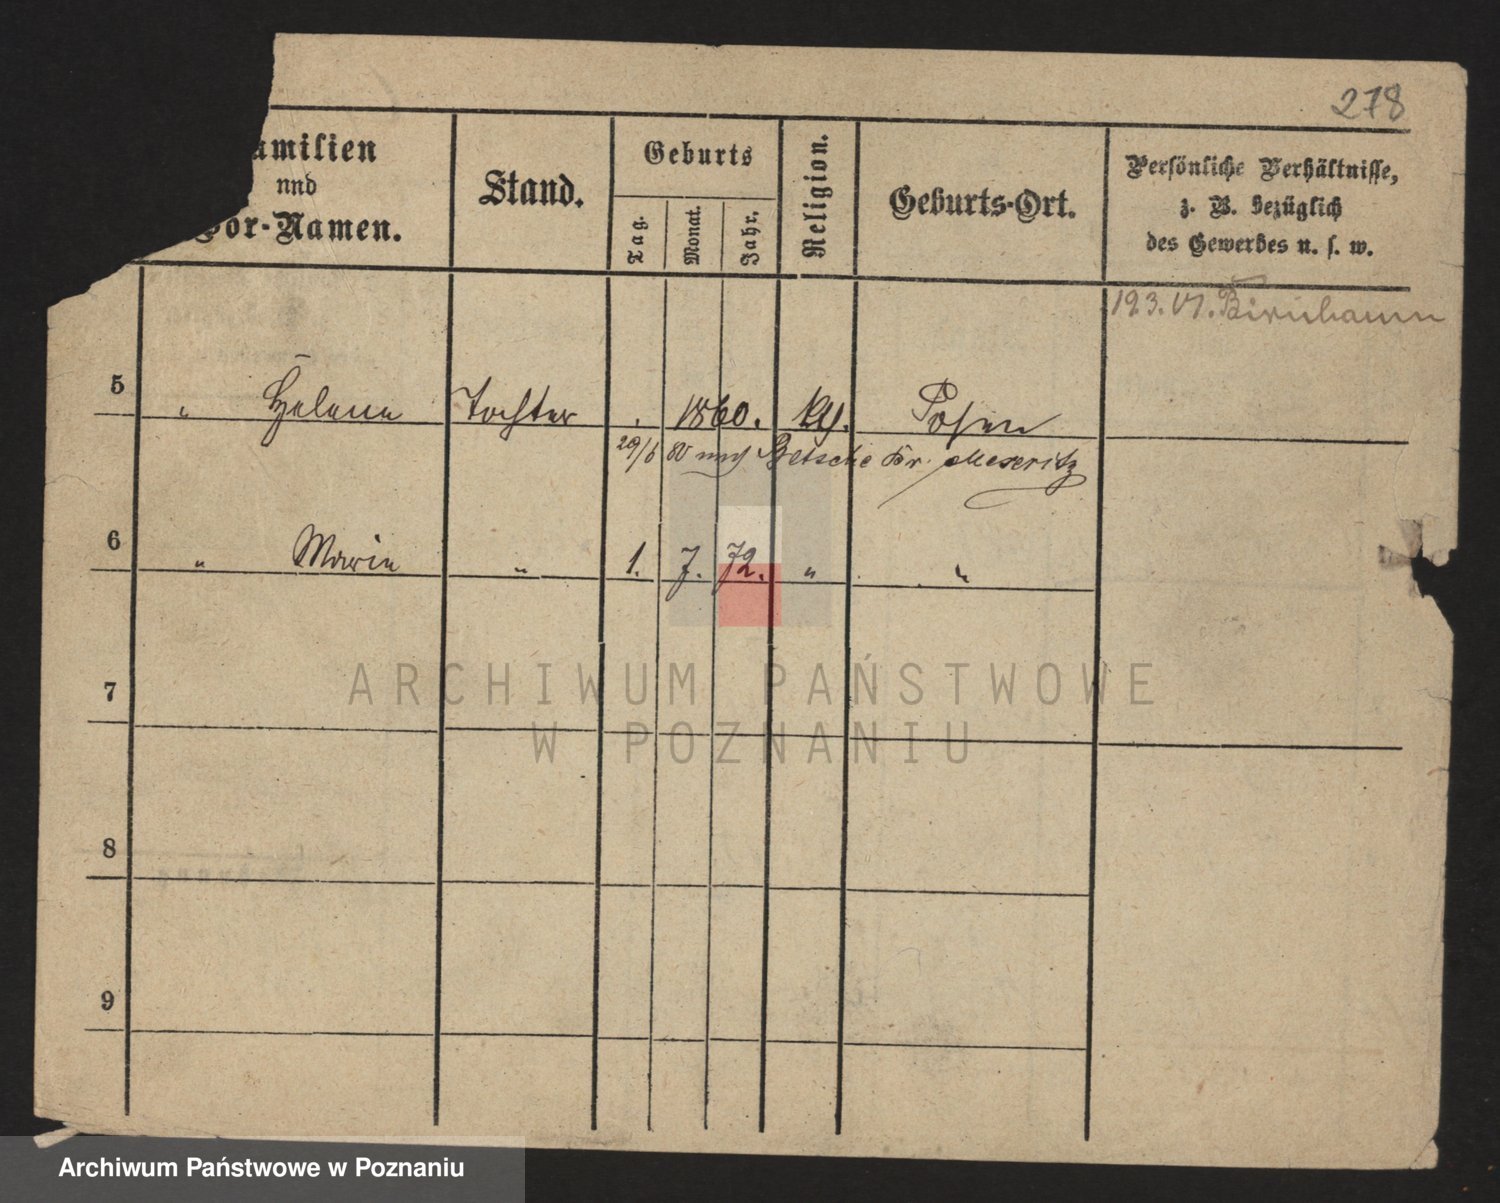 278
amilien
und
Vor-Namen.
Stand.
Geburts
Tag.
Monat.
Jahr.
Religion.
Geburts-Ort.
Persönliche Verhältnisse,
z. B. bezüglich
des Gewerbes u. s. w.
193. VI. Birnbaum
5 " Helene Tochter . 1860. Posen
29/6 80 nach Betsche Kr. Meseritz
6 " Marie " 1. 7. 72. " "
7
8
9
ARCHIWUM PAŃSTWOWE
W POZNANIU
Archiwum Państwowe w Poznaniu